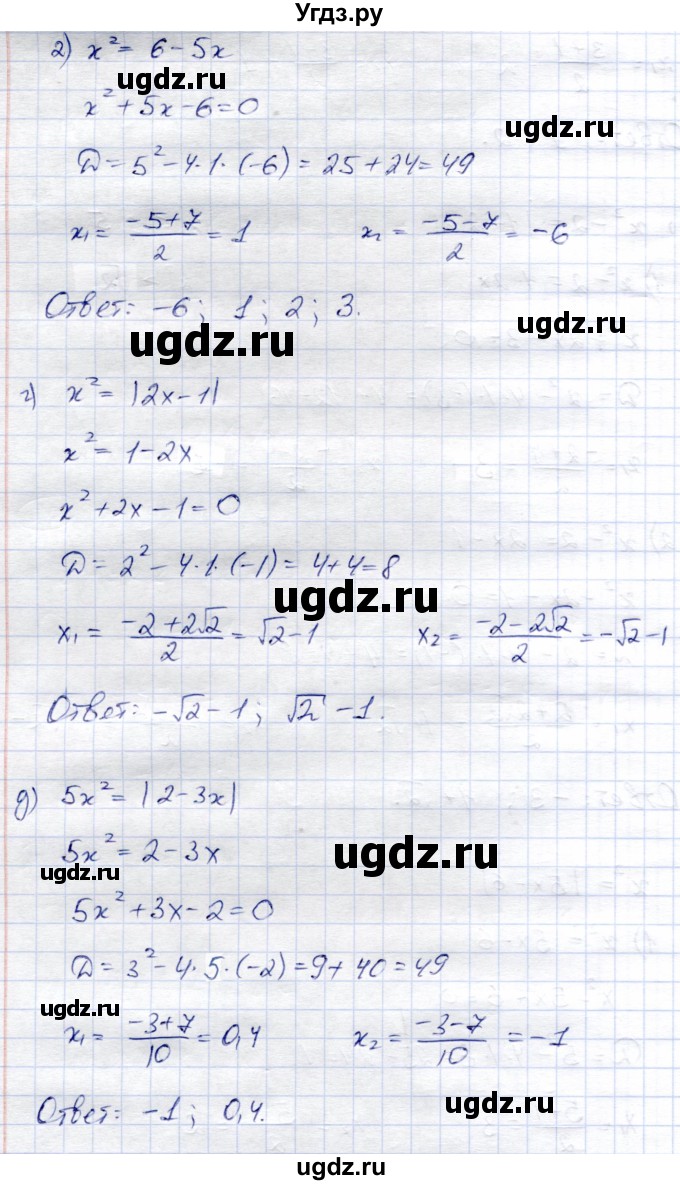 Угдз.ру
2) x² = 6 - 5x
ugdz.ru
ugdz.ru
x² + 5x - 6 = 0
D = 5² - 4·1·(-6) = 25 + 24 = 49
x₁ = (-5+7)/2 = 1 x₂ = (-5-7)/2 = -6
Ответ: -6; 1; 2; 3.
ugdz.ru
ugdz.ru
г) x² = |2x - 1|
x² = 1 - 2x
x² + 2x - 1 = 0
D = 2² - 4·1·(-1) = 4 + 4 = 8
ugdz.ru
x₁ = (-2 + 2√2)/2 = √2 - 1 x₂ = (-2 - 2√2)/2 = -√2 - 1
Ответ: -√2 - 1; √2 - 1.
ugdz.ru
д) 5x² = |2 - 3x|
5x² = 2 - 3x
ugdz.ru
ugdz.ru
5x² + 3x - 2 = 0
D = 3² - 4·5·(-2) = 9 + 40 = 49
ugdz.ru
x₁ = (-3+7)/10 = 0,4 x₂ = (-3-7)/10 = -1
ugdz.ru
Ответ: -1; 0,4.
ugdz.ru
ugdz.ru